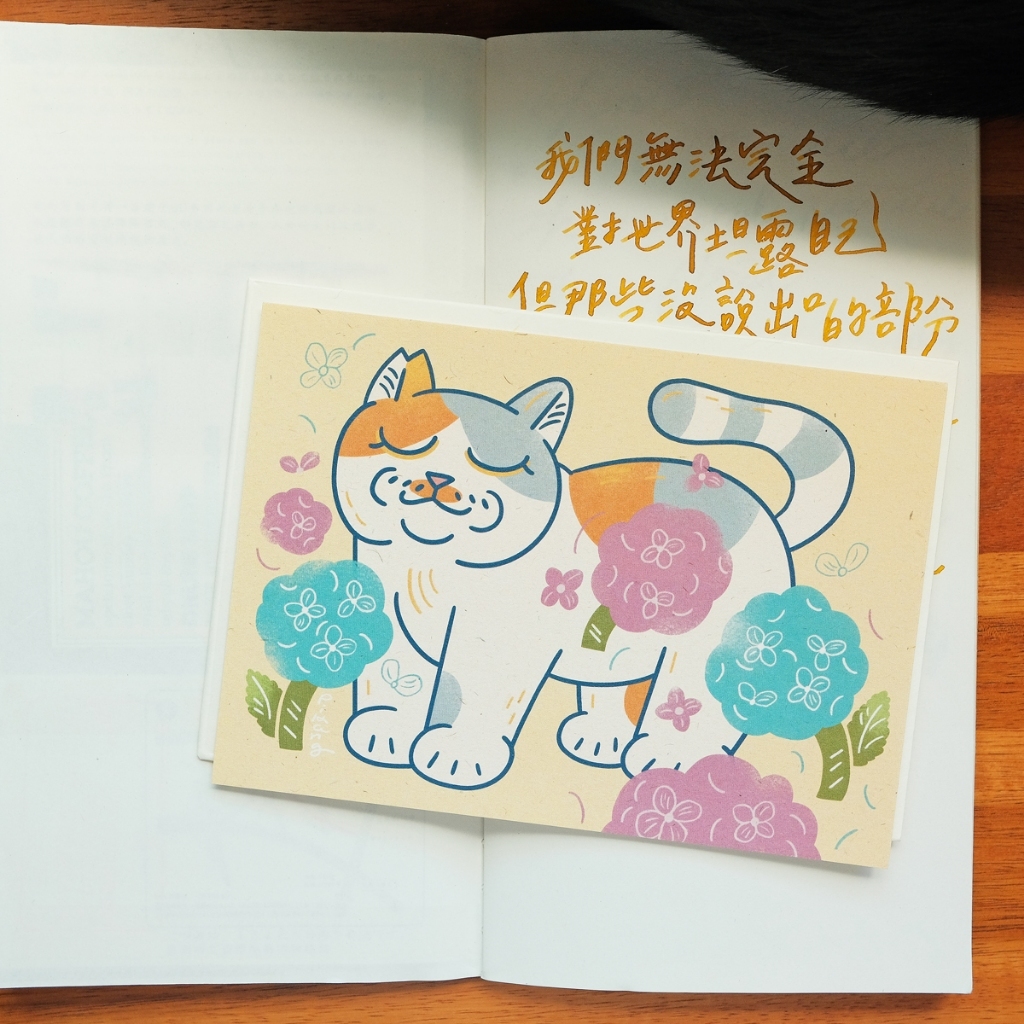 我們無法完全
對世界坦露自己
但那些沒說出口的部分